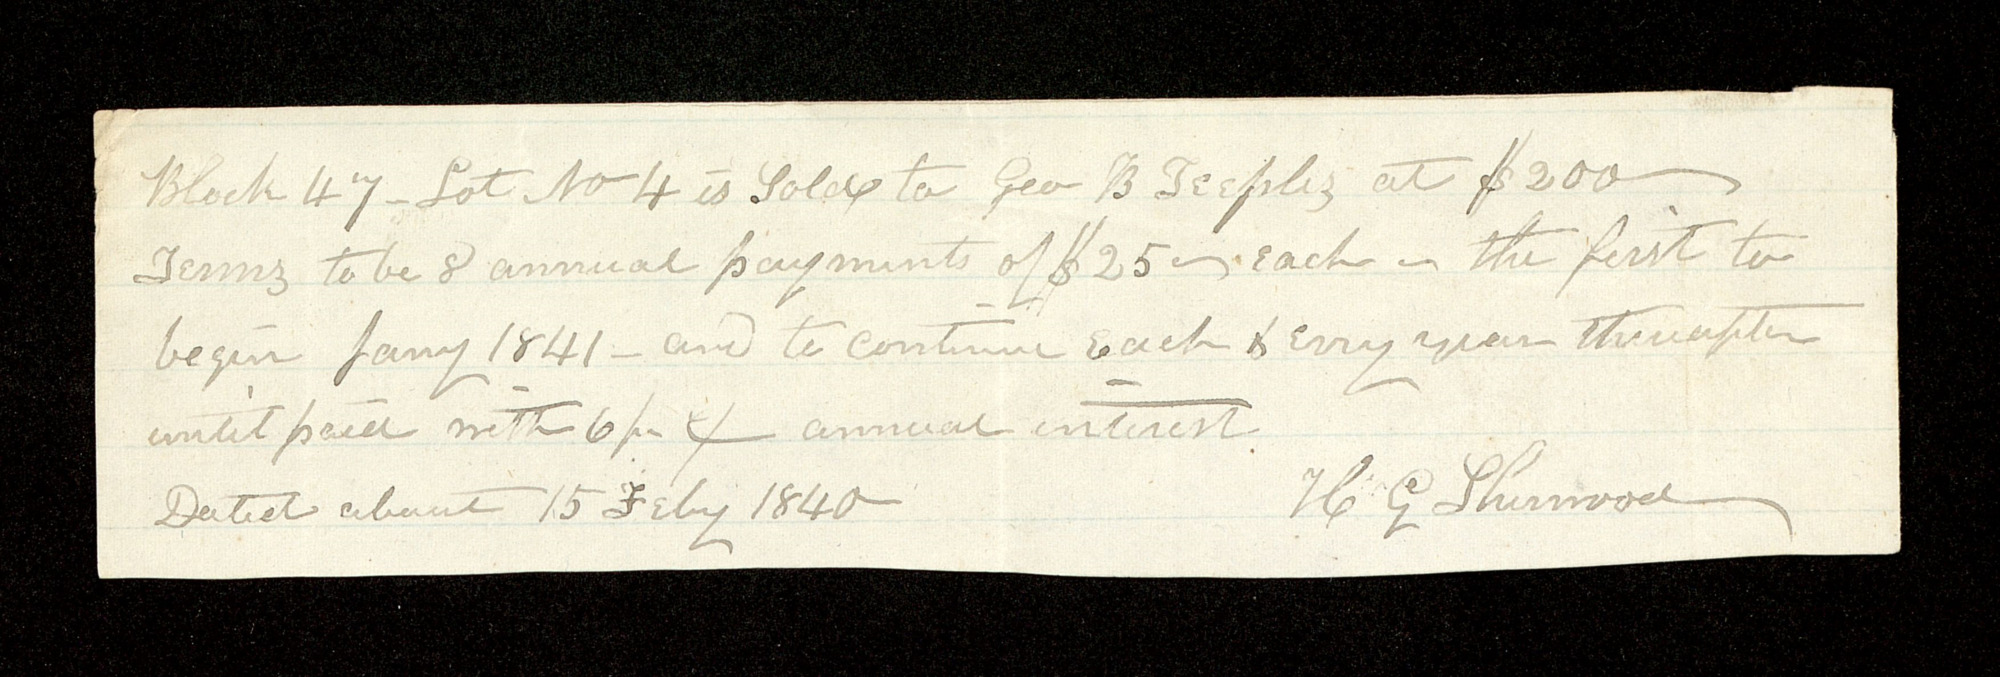 Block 47 - Lot No 4 is Sold to Geo B Teeples at $200
Terms to be 8 annual payments of $25 each the first to
begin Jany 1841 - and to continue each & every year thereafter
until paid with 6 pr ct annual interest
Dated about 15 Feby 1840 H G Sherwood